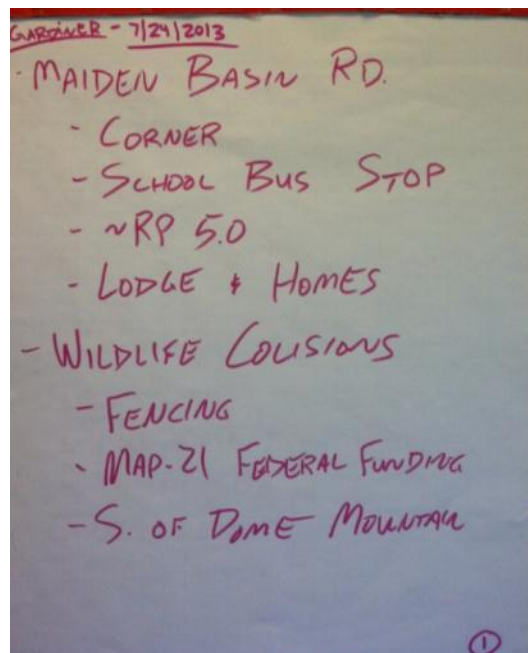 GARDINER - 7/24/2013
- MAIDEN BASIN RD.
- CORNER
- SCHOOL BUS STOP
- ~RP 5.0
- LODGE & HOMES
- WILDLIFE COLISIONS
- FENCING
- MAP-21 FEDERAL FUNDING
- S. OF DOME MOUNTAIN
1